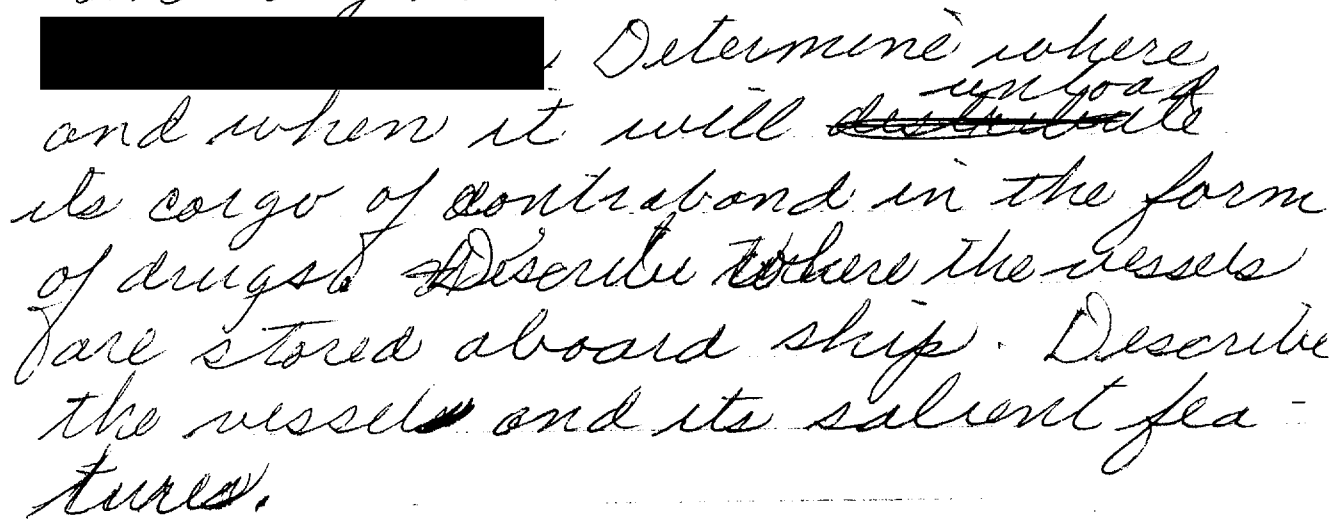 Determine where
unload
and when it will distribute
its cargo of contraband in the form
of drugs. Describe where the vessels
are stored aboard ship. Describe
the vessels and its salient fea-
tures.